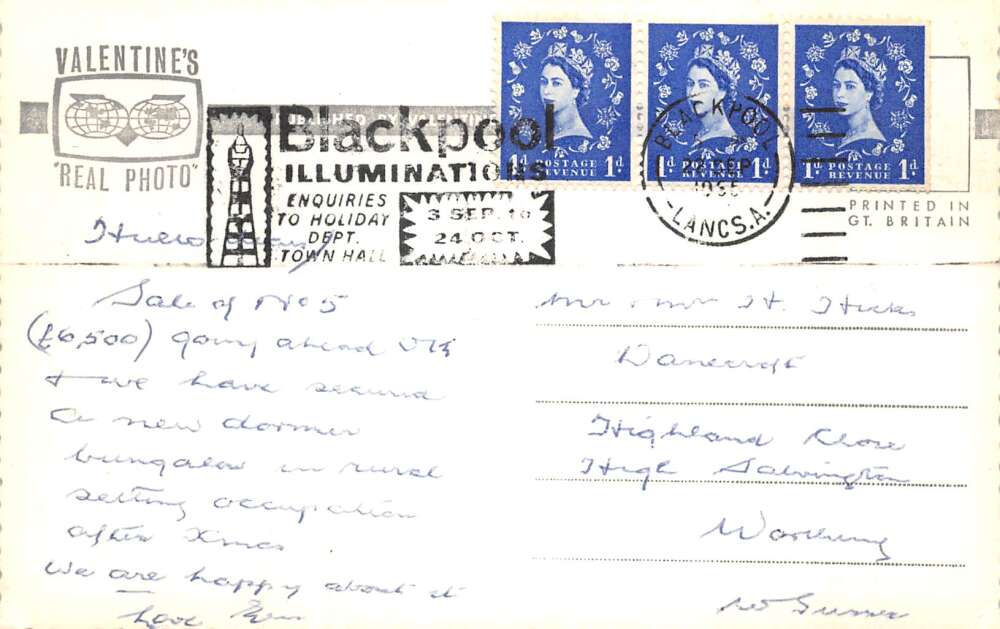 VALENTINE'S
"REAL PHOTO"
Blackpool
ILLUMINATIONS
ENQUIRIES
TO HOLIDAY
DEPT.
TOWN HALL
3 SEP. TO
24 OCT.
BLACKPOOL
SEP
LANCS.A.
1d POSTAGE REVENUE 1d
1d POSTAGE REVENUE 1d
1d POSTAGE REVENUE 1d
PRINTED IN
GT. BRITAIN
Sale of No 5
(£6,500) going ahead
& we have secured
a new dormer
bungalow in rural
setting occupation
after Xmas
We are happy about it
Love
Mr & Mrs H. Hicks
Danecroft
Highland Close
High Salvington
Worthing
Sussex